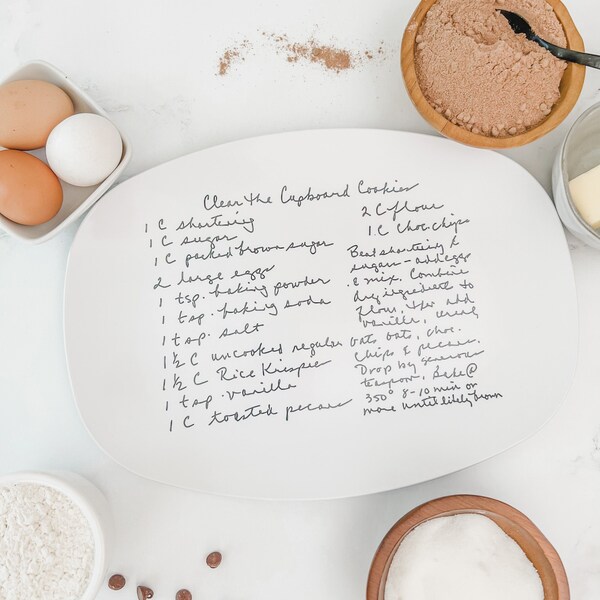 Clear the Cupboard Cookies
1 C shortening
1 C sugar
1 C packed brown sugar
2 large eggs
1 tsp. baking powder
1 tsp. baking soda
1 tsp. salt
1 ½ C uncooked regular oats
1 ½ C Rice Krispies
1 tsp. vanilla
1 C toasted pecans
2 C flour
1 C Choc. chips
Beat shortening &
sugars - add eggs
& mix. Combine
dry ingredients to
flour, then add
vanilla, cereal
oats, choc.
chips & pecans.
Drop by generous
teaspoon. Bake @
350° 8-10 min or
more until likely brown